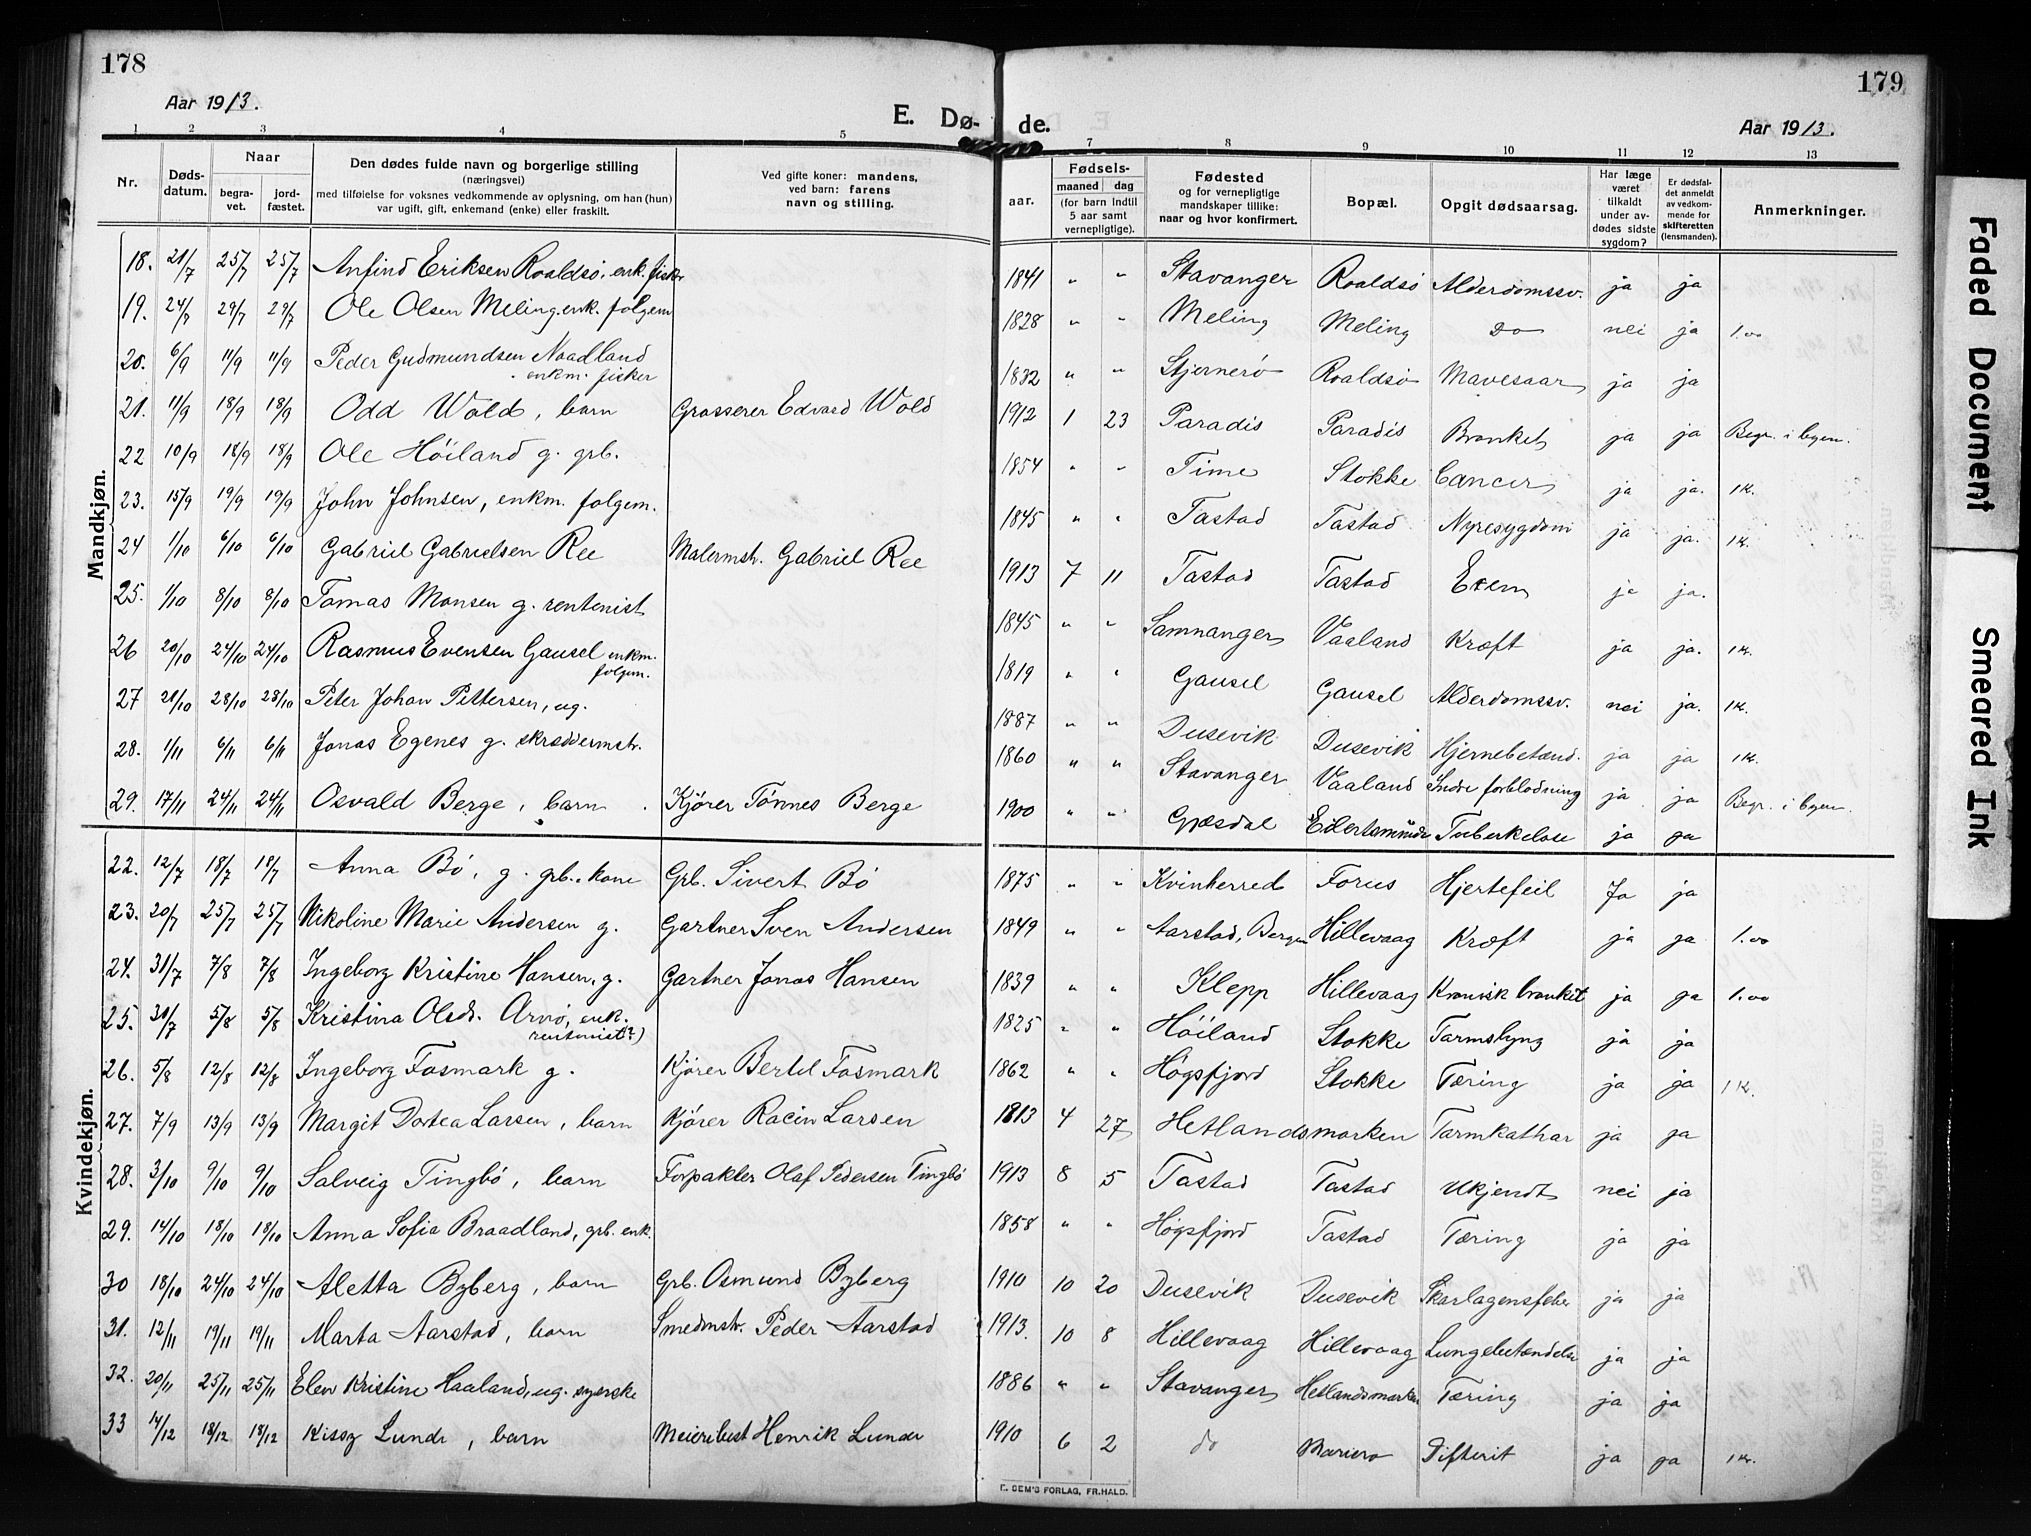 178
Aar 1913.
E. Dø-
1 2 3 4 5
Nr. Døds-datum. Naar begra-vet. jord-fæstet. Den dødes fulde navn og borgerlige stilling (næringsvei) med tilføielse for voksnes vedkommende av oplysning, om han (hun) var ugift, gift, enkemand (enke) eller fraskilt. Ved gifte koner: mandens, ved barn: farens navn og stilling.
Mandkjøn.
18. 21/7 25/7 25/7 Anfind Eriksen Roaldsø, enk. fisker
19. 24/7 29/7 29/7 Ole Olsen Meling enk. folgem
20. 6/9 11/9 11/9 Peder Gudmundsen Naadland enkm. fisker
21. 11/9 18/9 18/9 Odd Wold, barn Grosserer Edvard Wold
22 10/9 18/9 18/9 Ole Höiland g. grb.
23. 15/9 19/9 19/9 John Johnsen, enkm. folgem.
24 1/10 6/10 6/10 Gabriel Gabrielsen Ree Malermstr. Gabriel Ree
25. 1/10 8/10 8/10 Tomas Monsen g. rentenist
26 20/10 24/10 24/10 Rasmus Evensen Gausel enkm. folgem.
27 21/10 28/10 28/10 Peter Johan Pettersen, ug.
28. 1/11 6/11 6/11 Jonas Egenes g. skræddermstr.
29. 17/11 24/11 24/11 Osvald Berge, barn Kjører Tönnes Berge
Kvindekjøn.
22. 12/7 18/7 18/7 Anna Bö, g. grb. kone Grb. Sivert Bö
23. 20/7 25/7 25/7 Nikoline Marie Andersen g. Gartner Sven Andersen
24. 31/7 7/8 7/8 Ingeborg Kristine Hansen, g. Gartner Jonas Hansen
25. 31/7 5/8 5/8 Kristina Olsdr. Arnö, enk. rentenist(?)
26. 5/8 12/8 12/8 Ingeborg Fosmark g. Kjører Bertel Fosmark
27. 7/9 13/9 13/9 Margit Dortea Larsen, barn Kjører Racin Larsen
28. 3/10 9/10 9/10 Salveig Tingbö, barn Forpakter Olaf Pedersen Tingbö
29. 14/10 18/10 18/10 Anna Sofia Braadland, grb. enk.
30 18/10 24/10 24/10 Aletta Byberg, barn Grb. Osmund Byberg
31. 12/11 19/11 19/11 Marta Aarstad, barn Smedmstr. Peder Aarstad
32. 20/11 25/11 25/11 Elen Kristine Haaland, ug. syerske
33 14/12 18/12 18/12 Kissy Lunde, barn Meieribest Henrik Lunde
179
de.
Aar 1913.
7 8 9 10 11 12 13
Fødsels- aar. maaned dag (for barn indtil 5 aar samt vernepligtige). Fødested og for vernepligtige mandskaper tillike: naar og hvor konfirmert. Bopæl. Opgit dødsaarsag. Har læge været tilkaldt under av-dødes sidste sygdom? Er dødsfal-det anmeldt av vedkom-mende for skifteretten (lensmanden). Anmerkninger.
1841 " " Stavanger Roaldsö Alderdomssv. ja ja
1828 " " Meling Meling Do nei ja 1.00
1832 " " Stjernerö Roaldsö Mavesaar ja ja
1912 1 23 Paradis Paradis Bronkit ja ja Begr. i byen.
1854 " " Time Stokke Cancer ja ja. 1 K.
1845 " " Tastad Tastad Nyresygdom ja ja. 1 K.
1913 7 11 Tastad Tastad Exem ja ja.
1845 " " Samnanger Vaaland Kræft ja ja. 1 K.
1819 " " Gausel Gausel Alderdomssv. nei ja. 1 K.
1887 " " Dusevik Dusevik Hjernebetænd. ja ja 1 K.
1860 " " Stavanger Vaaland Indre forblødning ja ja Begr. i byen.
1900 " " Gjesdal Eilertsminde Tuberkelose ja ja
1875 " " Kvinherred Forus Hjertefeil Ja ja
1849 " " Aarstad, Bergen Hillevaag Kræft ja ja 1.00
1839 " " Klepp Hillevaag Kronisk bronkit ja ja 1.00
1825 " " Höiland Stokke Tarmslyng ja ja
1862 " " Högsfjord Stokke Tæring ja ja 1 K.
1813 4 27 Hetlandsmarken Tarmkathar ja ja
1913 8 5 Tastad Tastad Ukjendt nei ja
1858 " " Högsfjord Tastad Tæring ja ja
1910 10 20 Dusevik Dusevik Skarlagensfeber ja ja
1913. 10 8 Hillevaag Hillevaag Lungebetændelse ja ja
1886 " " Stavanger Hetlandsmarken Tæring ja ja
1910 6 2 do Mariero Difterit ja ja 1 Kr.
E. SEM'S FORLAG, FR.HALD.
Faded Document
Smeared Ink